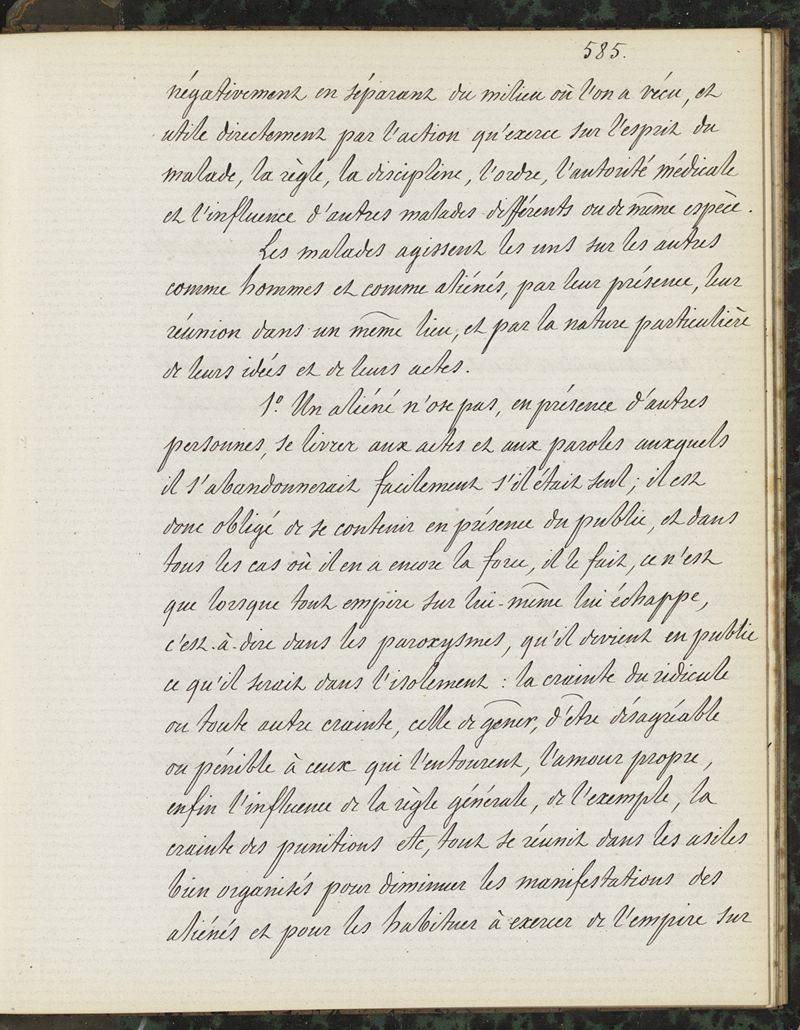 585.
négativement en séparant du milieu où l'on a vécu, et
utile directement par l'action qu'exerce sur l'esprit du
malade, la règle, la discipline, l'ordre, l'autorité médicale
et l'influence d'autres malades différents ou de même espèce.
Les malades agissent les uns sur les autres
comme hommes et comme aliénés, par leur présence, leur
réunion dans un même lieu, et par la nature particulière
de leurs idées et de leurs actes.
1º. Un aliéné n'ose pas, en présence d'autres
personnes, se livrer aux actes et aux paroles auxquels
il s'abandonnerait facilement s'il était seul ; il est
donc obligé de se contenir en présence du public, et dans
tous les cas où il en a encore la force, il le fait, ce n'est
que lorsque tout empire sur lui-même lui échappe,
c'est-à-dire dans les paroxysmes, qu'il devient en public
ce qu'il serait dans l'isolement : la crainte du ridicule
ou toute autre crainte, celle de gêner, d'être désagréable
ou pénible à ceux qui l'entourent, l'amour propre,
enfin l'influence de la règle générale, de l'exemple, la
crainte des punitions etc, tout se réunit dans les asiles
bien organisés pour diminuer les manifestations des
aliénés et pour les habituer à exercer de l'empire sur